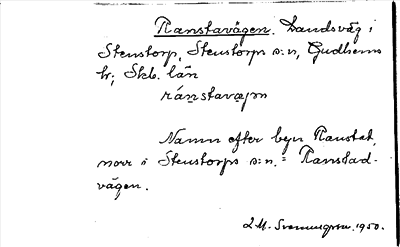 Ranstavägen. Landsväg i
Stenstorp, Stenstorps s:n, Gudhems
hr; Skb. län
ránstavæ̣ɡən
Namn efter byn Ranstad,
norr i Stenstorps s:n. = Ranstad-
vägen.
1950.